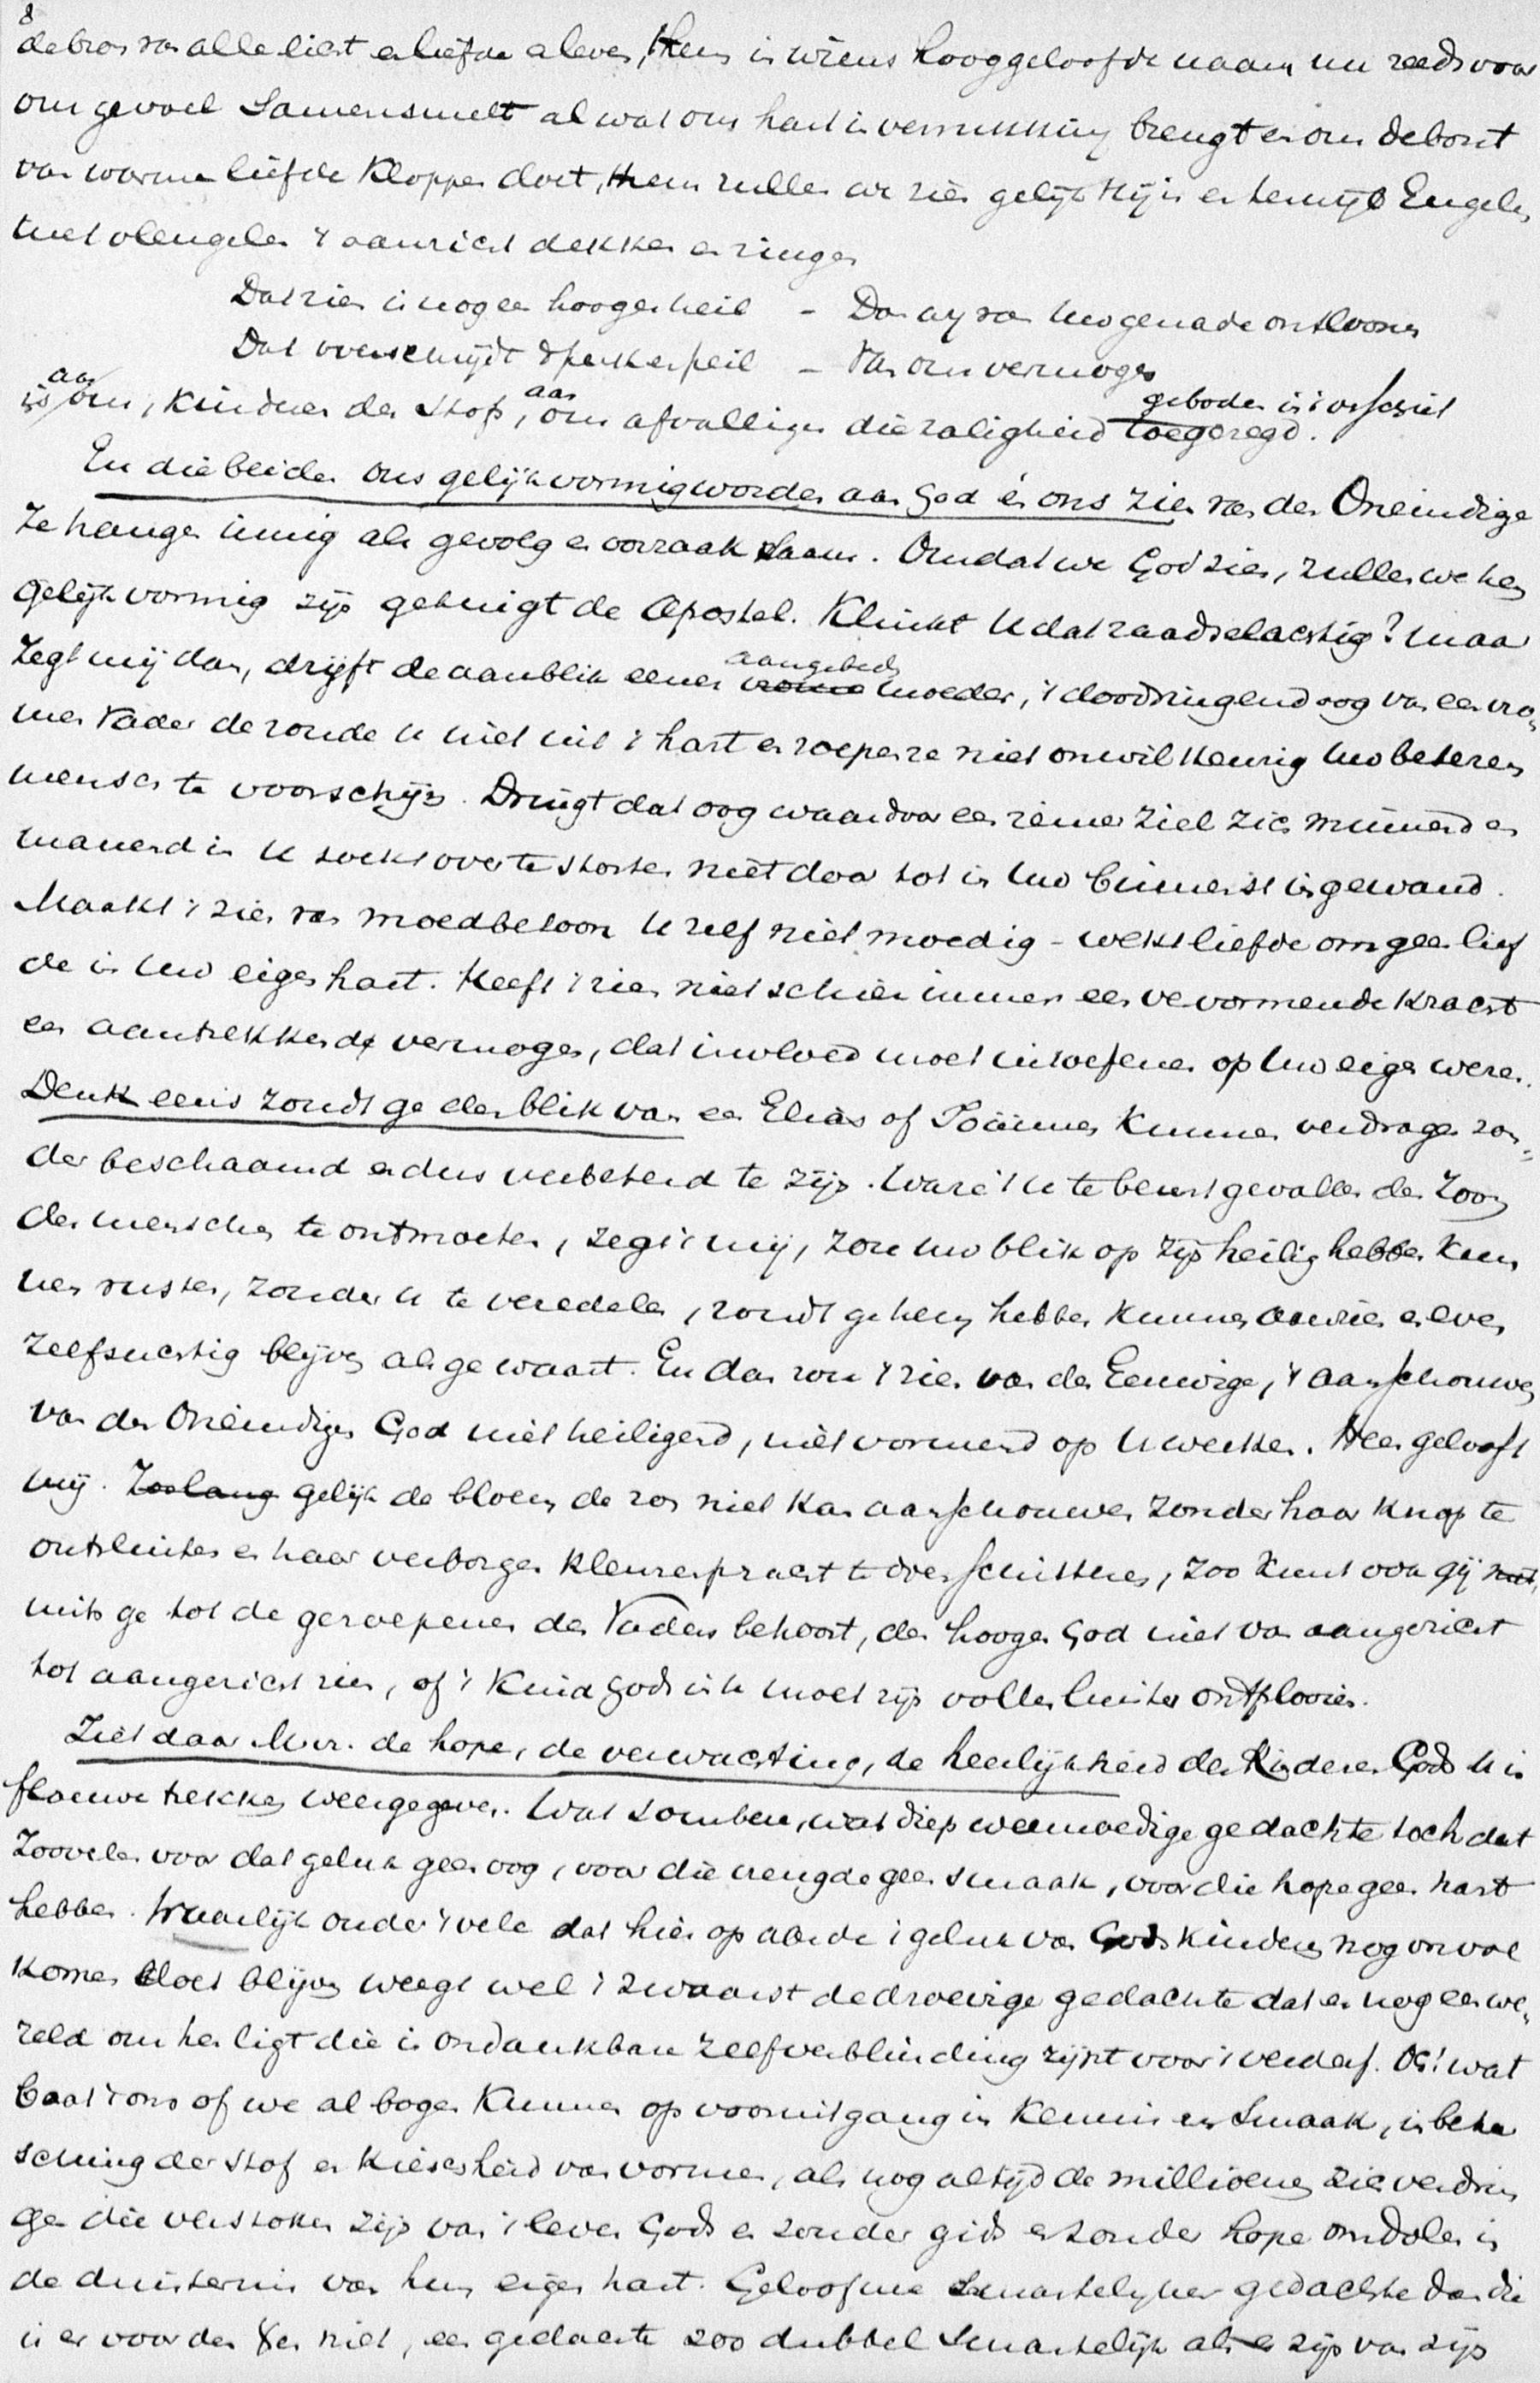 8
de bron van alle licht en liefde en leven, Hem in wiens hooggeloofde naam nu reeds voor
ons gevoel samensmelt al wat ons hart in verrukking brengt en ons de borst
van warme liefde kloppen doet, Hem zullen we zien gelijk Hij is en terwijl Engelen
met vleugelen 't aanzicht dekken en zingen
Dat zien is nog een hooger heil – Dan wij van Uw genade ontloonen
Dat overschrijdt d' perk en peil – Van ons vermogen
is aan ons, kinderen der stof, aan ons afvalligen die zaligheid toegezegd. geboden in 't verschiet
En die beiden ons gelijkvormig worden aan God én ons zien van den Oneindige
Ze hangen innig als gevolg en oorzaak saam. Omdat we God zien, zullen we hem
gelijkvormig zijn getuigt de Apostel. Klinkt U dat raadselachtig? Maar
Zegt mij dan, drijft de aanblik eener vrome aangebeden moeder, 't doordringend oog van een vro-
men Vader de zonde U niet uit 't hart en roepen ze niet onwillekeurig Uw beteren
mensch te voorschijn. Dringt dat oog waardoor een reiner ziel zich minnend en
manend in U zoekt over te storten niet door tot in Uw binnenst ingewand.
Maakt 't zien van moedbetoon U zelf niet moedig – wekt liefde om geen lief
de in Uw eigen hart. Heeft 't zien niet schier immer een vervormende kracht
een aantrekkend vermogen, dat invloed moet uitoefenen op Uw eigen wezen.
Denk eens zoudt ge den blik van een Elias of Joännes kunnen verdragen zon-
der beschaamd en dus verbeterd te zijn. Ware 't U te beurt gevallen den Zoon
des menschen te ontmoeten, zegt 't mij, zou Uw blik op zijn heilig hebben kun
nen rusten, zonder U te veredelen, zoudt ge hem hebben kunnen aanzien en even
zelfzuchtig blijven als ge waart. En dan zou 't zien van den Eeuwige, 't aanschouwen
van den Oneindigen God niet heiligend, niet vormend op U werken. Neen gelooft
mij. Zoolang gelijk de bloem de zon niet kan aanschouwen zonder haar knop te
ontsluiten en haar verborgen kleurenpracht te doen schitteren, zoo kunt ook gij niet,
mits ge tot de geroepenen des Vaders behoort, den hoogen God niet van aangezicht
tot aangezicht zien, of 't kind Gods in U moet zijn vollen luister ontplooien.
Ziet daar M.vr. de hope, de verwachting, de heerlijkheid der Kinderen Gods U in
flauwe trekken weergegeven. Wat sombere, wat diep weemoedige gedachte toch dat
Zoovelen voor dat geluk geen oog, voor die vreugde geen smaak, voor die hope geen hart
hebben. Waarlijk onder 't vele dat hier op aarde 't geluk van Gods kinderen nog onvol
komen doet blijven weegt wel 't zwaarst de droevige gedachte dat er nog een we-
reld om hen ligt die in ondankbare zelfverblinding zijnt voor 't verderf. Och! wat
baat 't ons of we al bogen kunnen op vooruitgang in kennis en smaak, in beheer
sching der stof en kieschheid van vormen, als nog altijd de millioenen zich verdrin
gen die verstoken zijn van 't leven Gods en zonder gids en zonder hope omdolen in
de duisternis van hun eigen hart. Geloof me smartelijker gedachte dan die
is er voor den Xen niet, een gedachte zoo dubbel smartelijk als er zijn van zijn